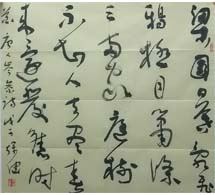 梁園日暮亂飛
鴉極目蕭條
三兩家庭樹
不知人去盡春
來還發舊時
花唐人岑參詩